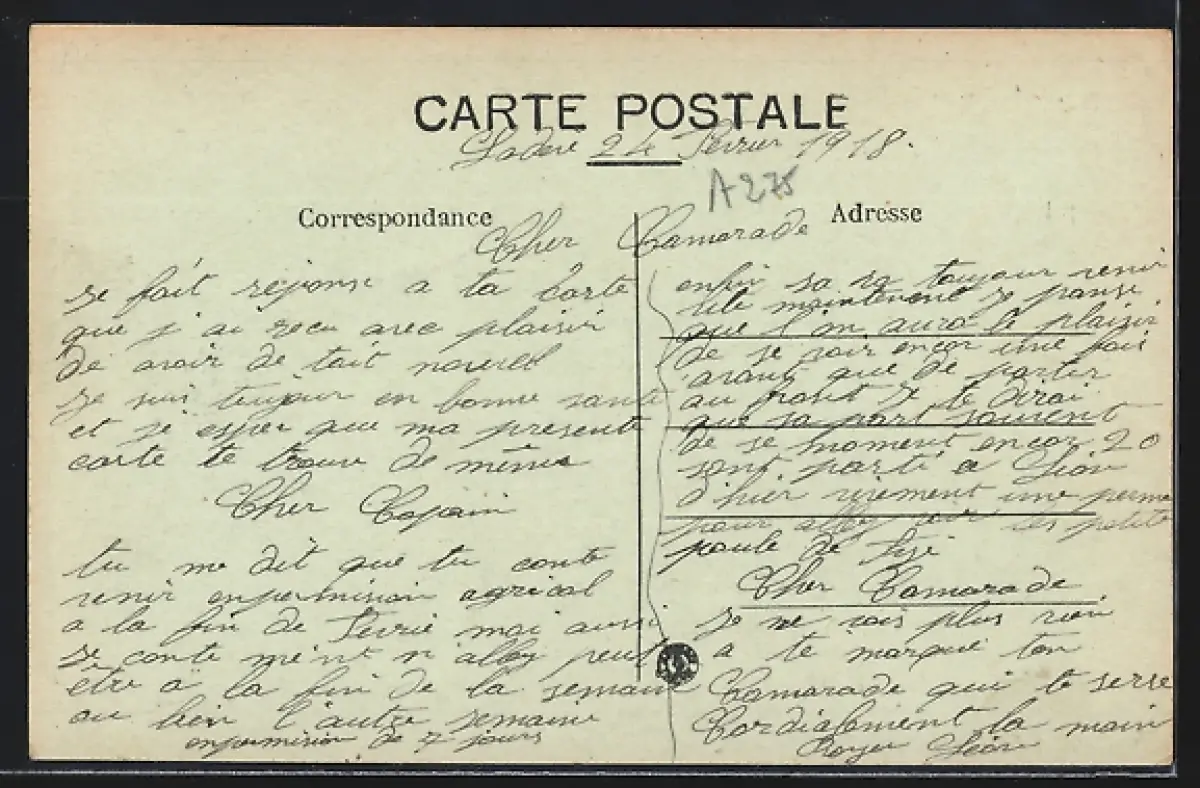 CARTE POSTALE
24 Fevrier 1918.
A275
Correspondance
Adresse
Cher Camarade
Je fait réponse a ta Carte
que j'ai recu avec plaisir
de avoir de tait nouvel
Je suis toujour en bonne santé
et je espier que ma presente
carte te trouve de même
Cher Copain
tu me dit que tu conte
venir enpermision agricol
a la fin de Fevrié mai aussi
Je conte m'en n'alley peut
être a la fin de la semaine
ou bien l'autre semaine
enpermision de 7 jours
enfin sa va toujour venir
vite maintenent je panse
que l'on aura le plaisir
de se voir encor une fois
avant que de partir
au front Je te dirai
que sa part souvent
de se moment encor 20
sont parti a
d'hier vivement une perme
pour alley voir les petite
poule de
Cher Camarade
Je ne vois plus rien
a te marqué ton
Camarade qui te serre
Cordialement la main
Léon